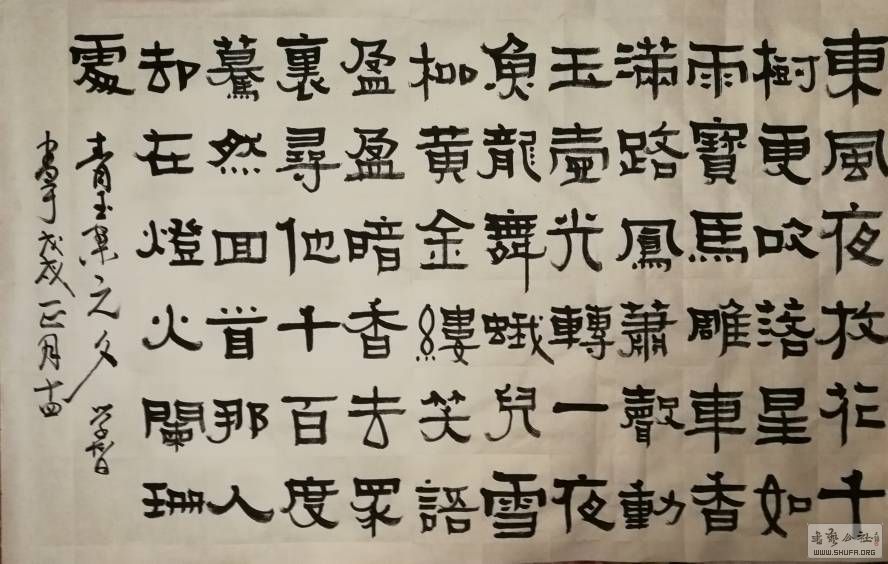 東風夜放花千
樹更吹落星如
雨寶馬雕車香
滿路鳳蕭聲動
玉壺光轉一夜
魚龍舞蛾兒雪
柳黄金縷笑語
盈盈暗香去眾
裏尋他千百度
驀然回首那人
却在燈火闌珊
處
青玉案元夕 学智
書于戊戌正月十四
书艺公社
WWW.SHUFA.ORG